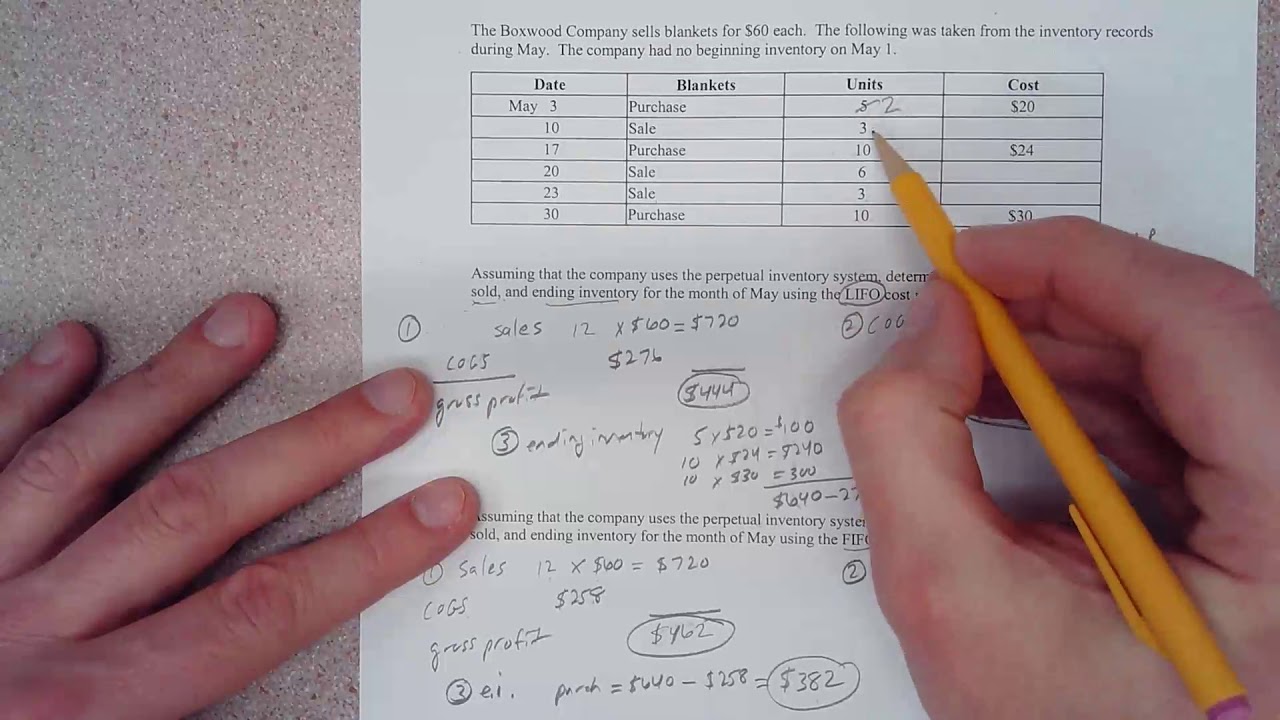 The Boxwood Company sells blankets for $60 each. The following was taken from the inventory records
during May. The company had no beginning inventory on May 1.
Date Blankets Units Cost
May 3 Purchase 5 2 $20
10 Sale 3
17 Purchase 10 $24
20 Sale 6
23 Sale 3
30 Purchase 10 $30
Assuming that the company uses the perpetual inventory system, determ
sold, and ending inventory for the month of May using the LIFO cost
① sales 12 x $60 = $720 ② COG
COGS $276
gross profit $444
③ ending inventory 5 x $20 = $100
10 x $24 = $240
10 x $30 = 300
$640 - 27
Assuming that the company uses the perpetual inventory syste
sold, and ending inventory for the month of May using the FIFO
① Sales 12 x $60 = $720 ②
COGS $258
gross profit $462
③ e.i. purch = $640 - $258 = $382